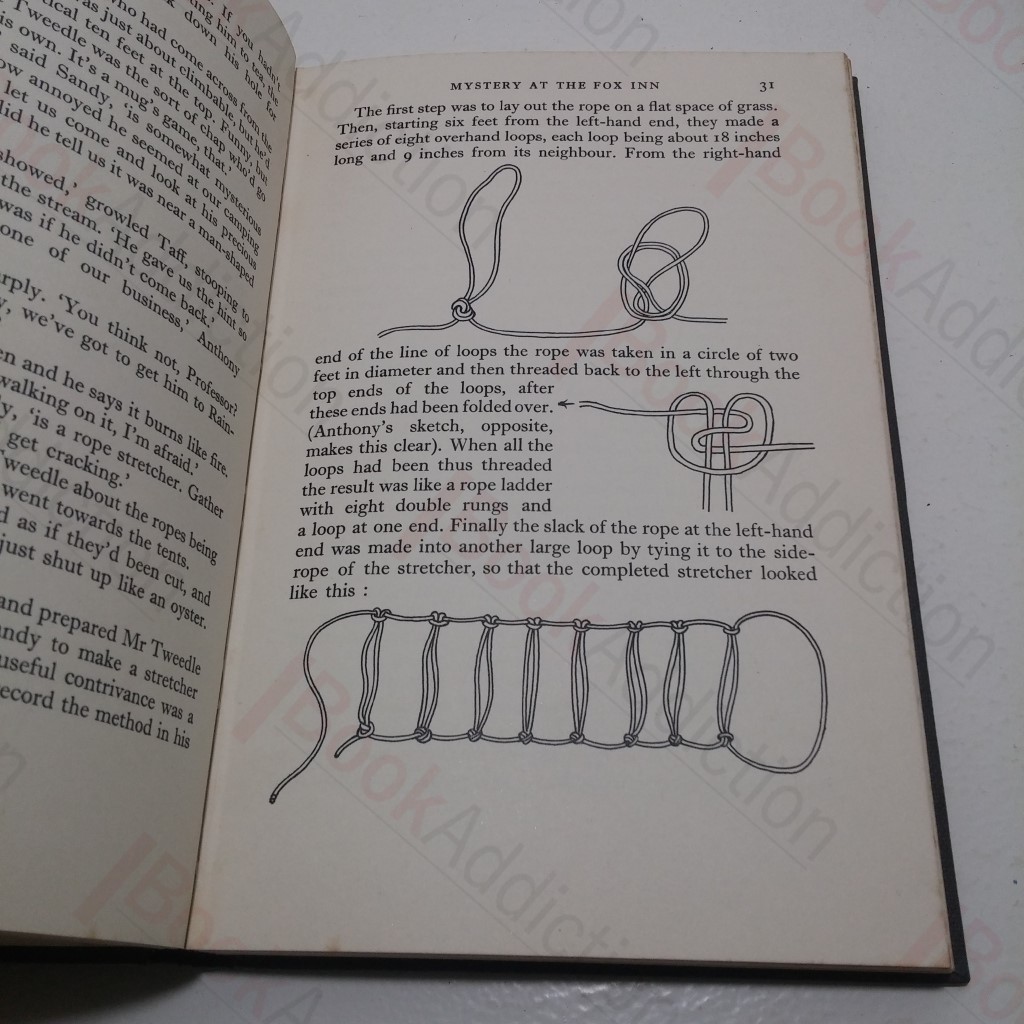 If you hadn't
ting him to tea, the
down his hole for
who had come across from the
as just about climbable, but he'd
tical ten feet at the top. Funny, but
Tweedle was the sort of chap who'd go
is own. It's a mug's game, that.'
said Sandy, 'is somewhat mysterious
ow annoyed he seemed at our camping
let us come and look at his precious
did he tell us it was near a man-shaped
showed,' growled Taff, stooping to
the stream. 'He gave us the hint so
was if he didn't come back.'
one of our business,' Anthony
arply. 'You think not, Professor?
y, we've got to get him to Rain-
en and he says it burns like fire.
walking on it, I'm afraid.'
ly, 'is a rope stretcher. Gather
get cracking.'
Tweedle about the ropes being
went towards the tents.
d as if they'd been cut, and
just shut up like an oyster.
and prepared Mr Tweedle
andy to make a stretcher
useful contrivance was a
ecord the method in his
MYSTERY AT THE FOX INN 31
The first step was to lay out the rope on a flat space of grass.
Then, starting six feet from the left-hand end, they made a
series of eight overhand loops, each loop being about 18 inches
long and 9 inches from its neighbour. From the right-hand
end of the line of loops the rope was taken in a circle of two
feet in diameter and then threaded back to the left through the
top ends of the loops, after
these ends had been folded over.
(Anthony's sketch, opposite,
makes this clear). When all the
loops had been thus threaded
the result was like a rope ladder
with eight double rungs and
a loop at one end. Finally the slack of the rope at the left-hand
end was made into another large loop by tying it to the side-
rope of the stretcher, so that the completed stretcher looked
like this :
BookAddiction